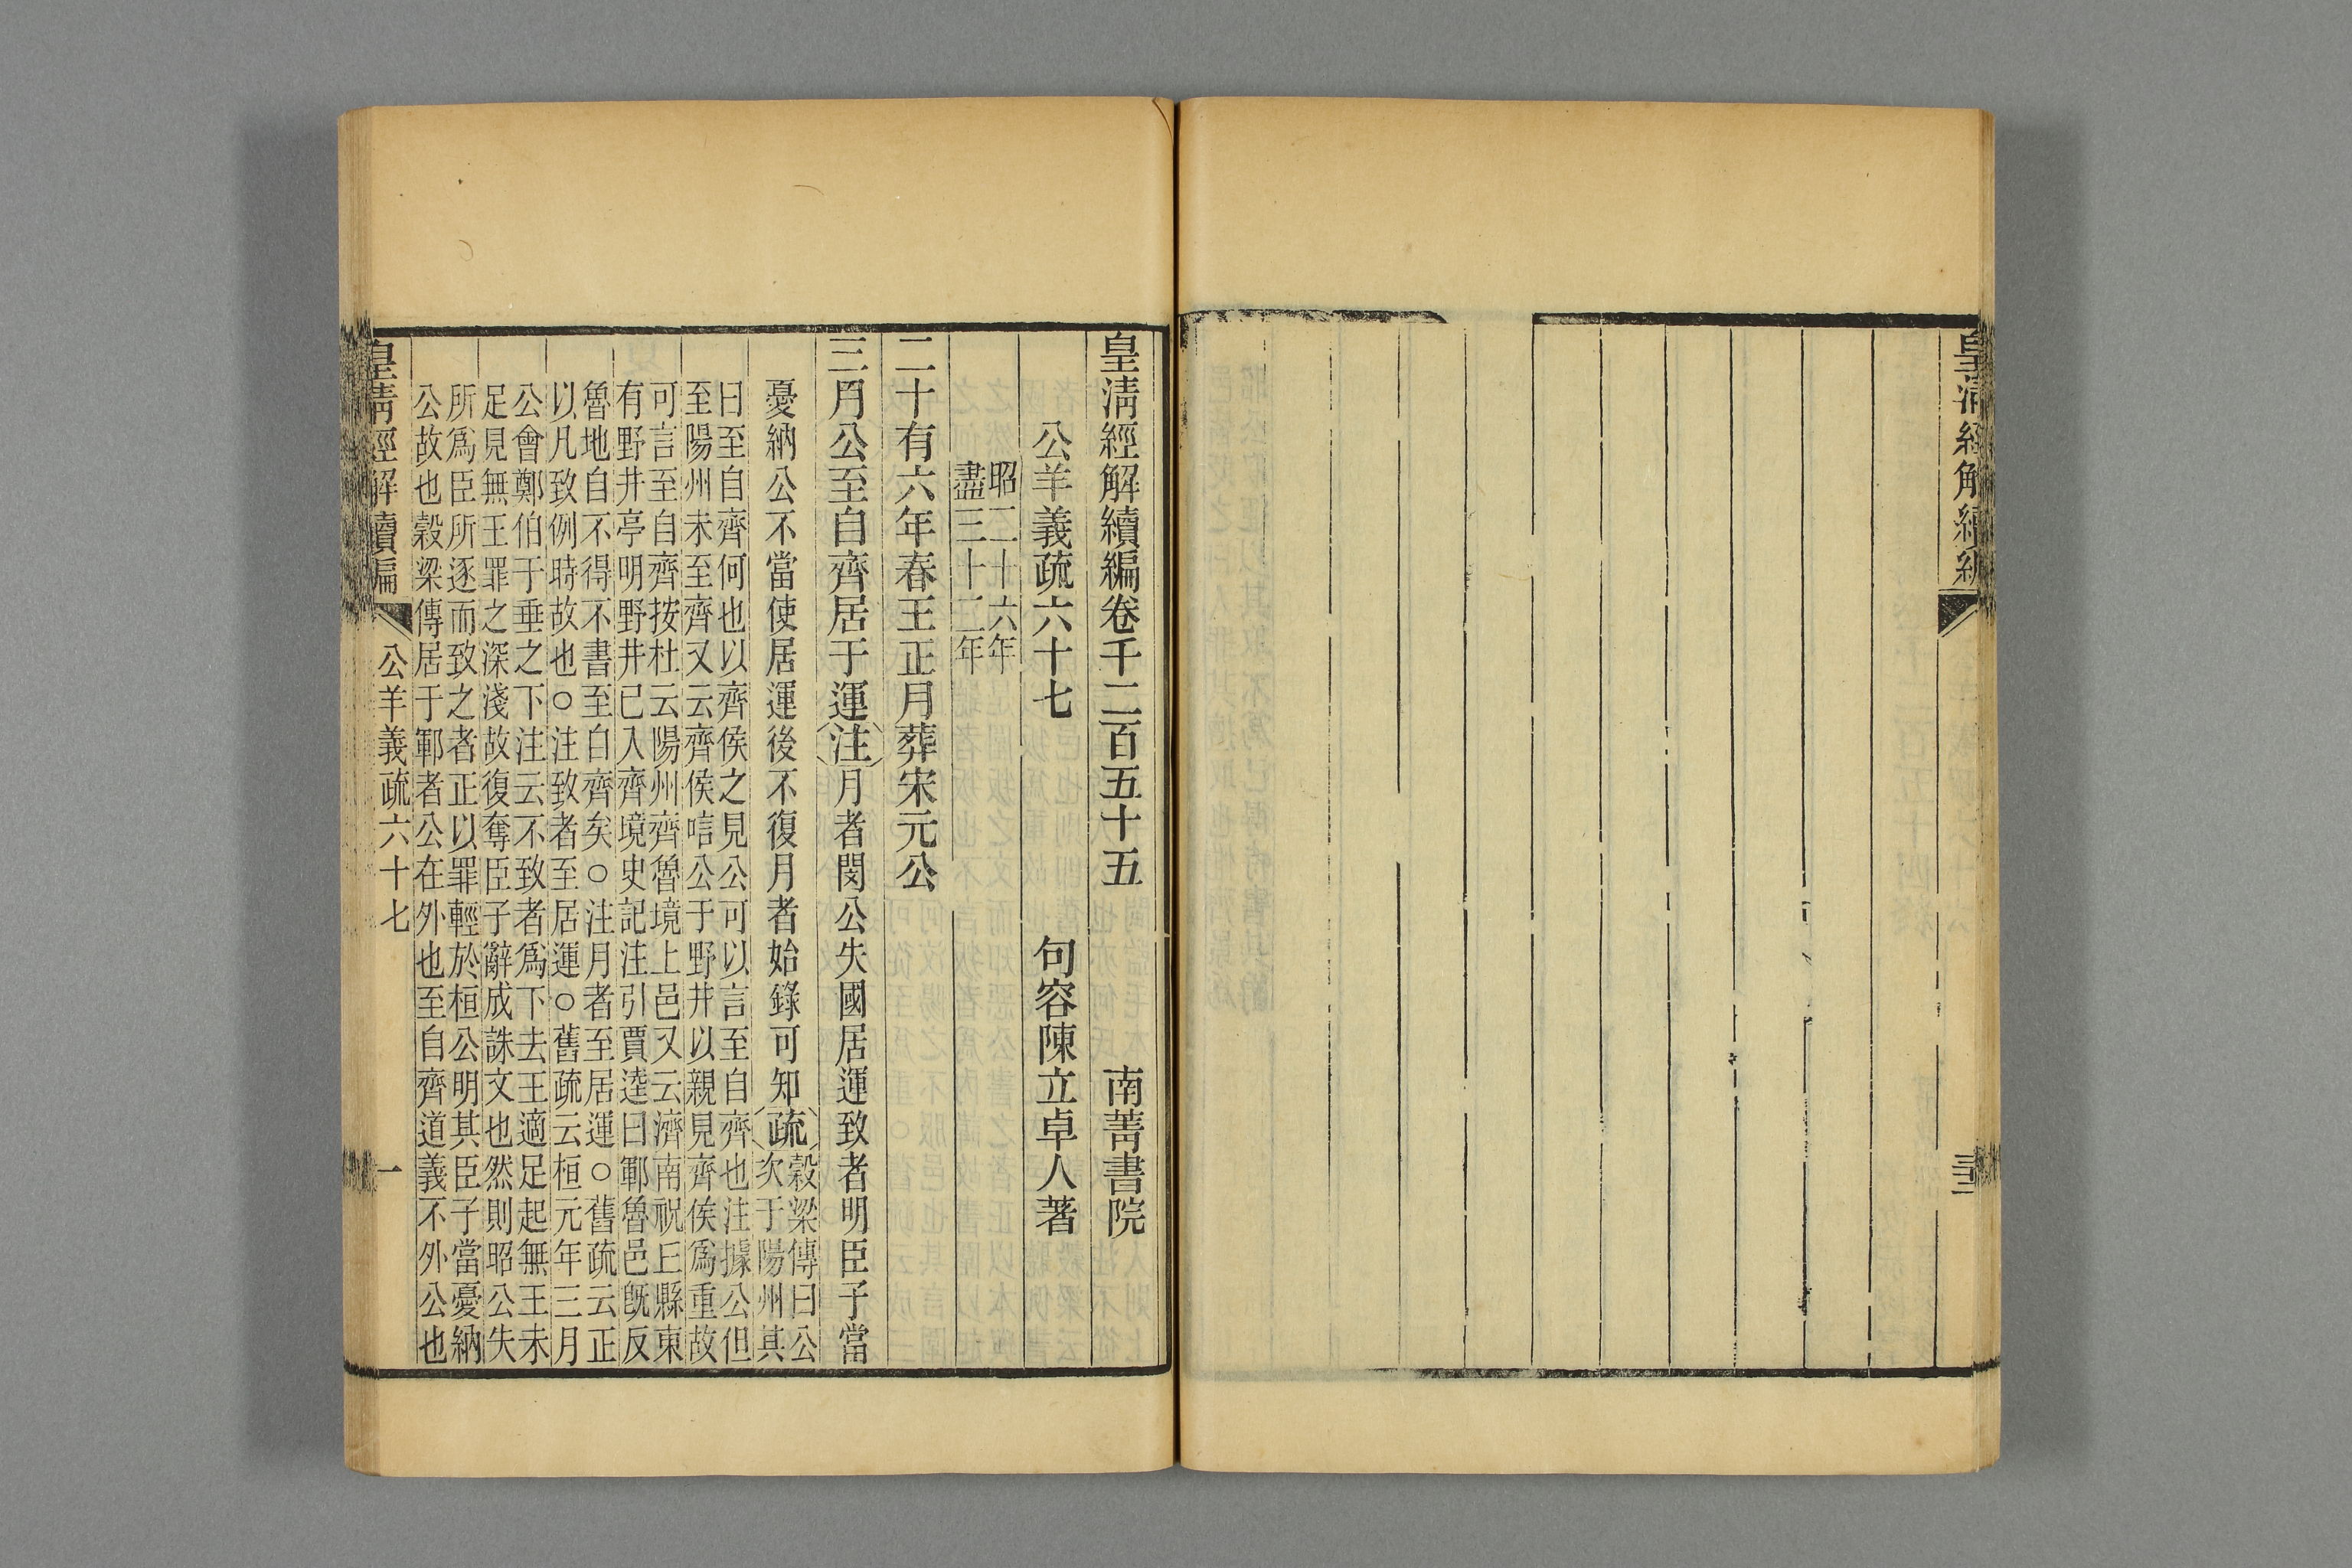 皇清經解續編
三十三
皇清經解續編卷千二百五十五　南菁書院
公羊義疏六十七　句容陳立卓人著
昭二十六年
盡三十二年
二十有六年春王正月葬宋元公
三月公至自齊居于運注月者閔公失國居運致者明臣子當
憂納公不當使居運後不復月者始錄可知疏
穀梁傳曰公
次于陽州其
曰至自齊何也以齊侯之見公可以言至自齊也注據公但
至陽州未至齊又云齊侯唁公于野井以親見齊侯爲重故
可言至自齊按杜云陽州齊魯境上邑又云濟南祝阿縣東
有野井亭明野井已入齊境史記注引賈逵曰鄆魯邑旣反
魯地自不得不書至自齊矣○注月者至居運○舊疏云正
以凡致例時故也○注致者至居運○舊疏云桓元年三月
公會鄭伯于垂之下注云不致者爲下去王適足起無王未
足見無王罪之深淺故復奪臣子辭成誅文也然則昭公失
所爲臣所逐而致之者正以罪輕於桓公明其臣子當憂納
公故也穀梁傳居于鄆者公在外也至自齊道義不外公也
皇清經解續編
公羊義疏六十七
一